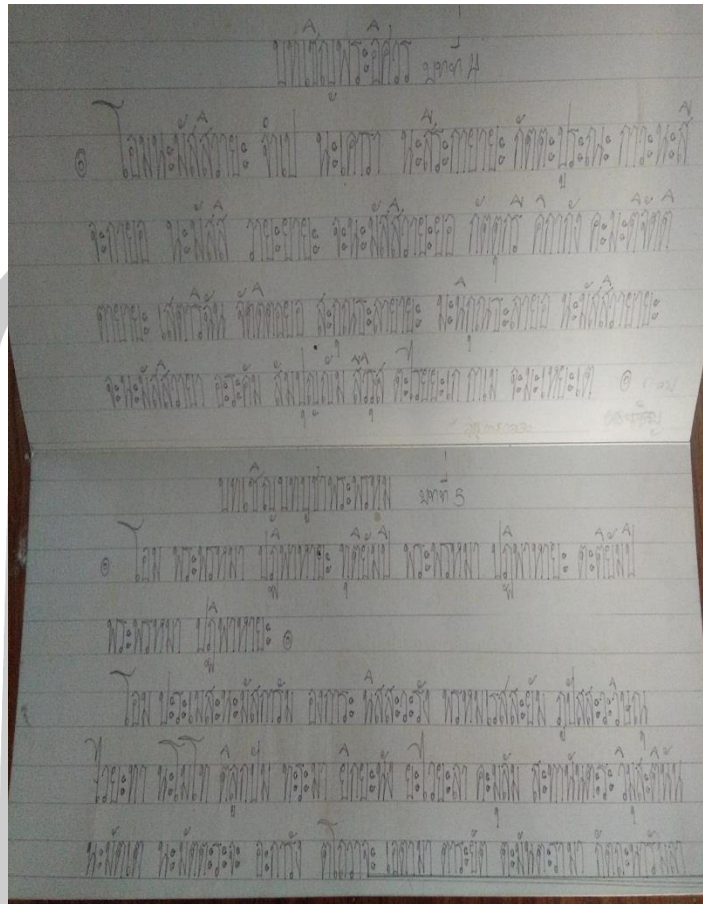 บทเชิญพระอิศวร บทที่ 4
๏ โอมนะมัสสิวายะ จำเป นะเคารา นะสีระกายายะ กัตตะประณะ การะนะสี
จะกายอ นะมัสสิ วายะยายะ จะนะมัสสิวายะยอ กัตตุารี คิกกัง คะมะติจัตติ
ตายายะ เสตาริสัน จัตติตอยอ สะกุณธะลายายะ มะนิกุณธะลายอ นะมัสสิวายายะ
จะนะมัสสิวายา อะระคัม สัมปุณณัม สิริสุ ตะไรยยะเภ กาเม จะมะเหยะเต ๏
บทเชิญบทบูชาพระพรหม บทที่ 5
๏ โอม พระพรหมา ปฏิพาหายะ ทุติยัมปิ พระพรหมา ปฏิพาหายะ ตะติยัมปิ
พระพรหมา ปฏิพาหายะ ๏
โอม ประเมสะทะมัสการัม องการะ นิสสะวะรัง พรหมเรสสะยัม ภูปัสสะวะวิษณุ
ไวยะทา นะโมโท ติลูกปัม ทะระมา ยิกยะนัง ยะไวยะลา คะมุลัม สะทานันตะระ วิมุสะตินัน
นะมัตเต นะมัตตะระจะ อะการัง ตโถวาจะ เอตามา ตาระยัต ตะมันตะรามา กัตถะพารัมลา